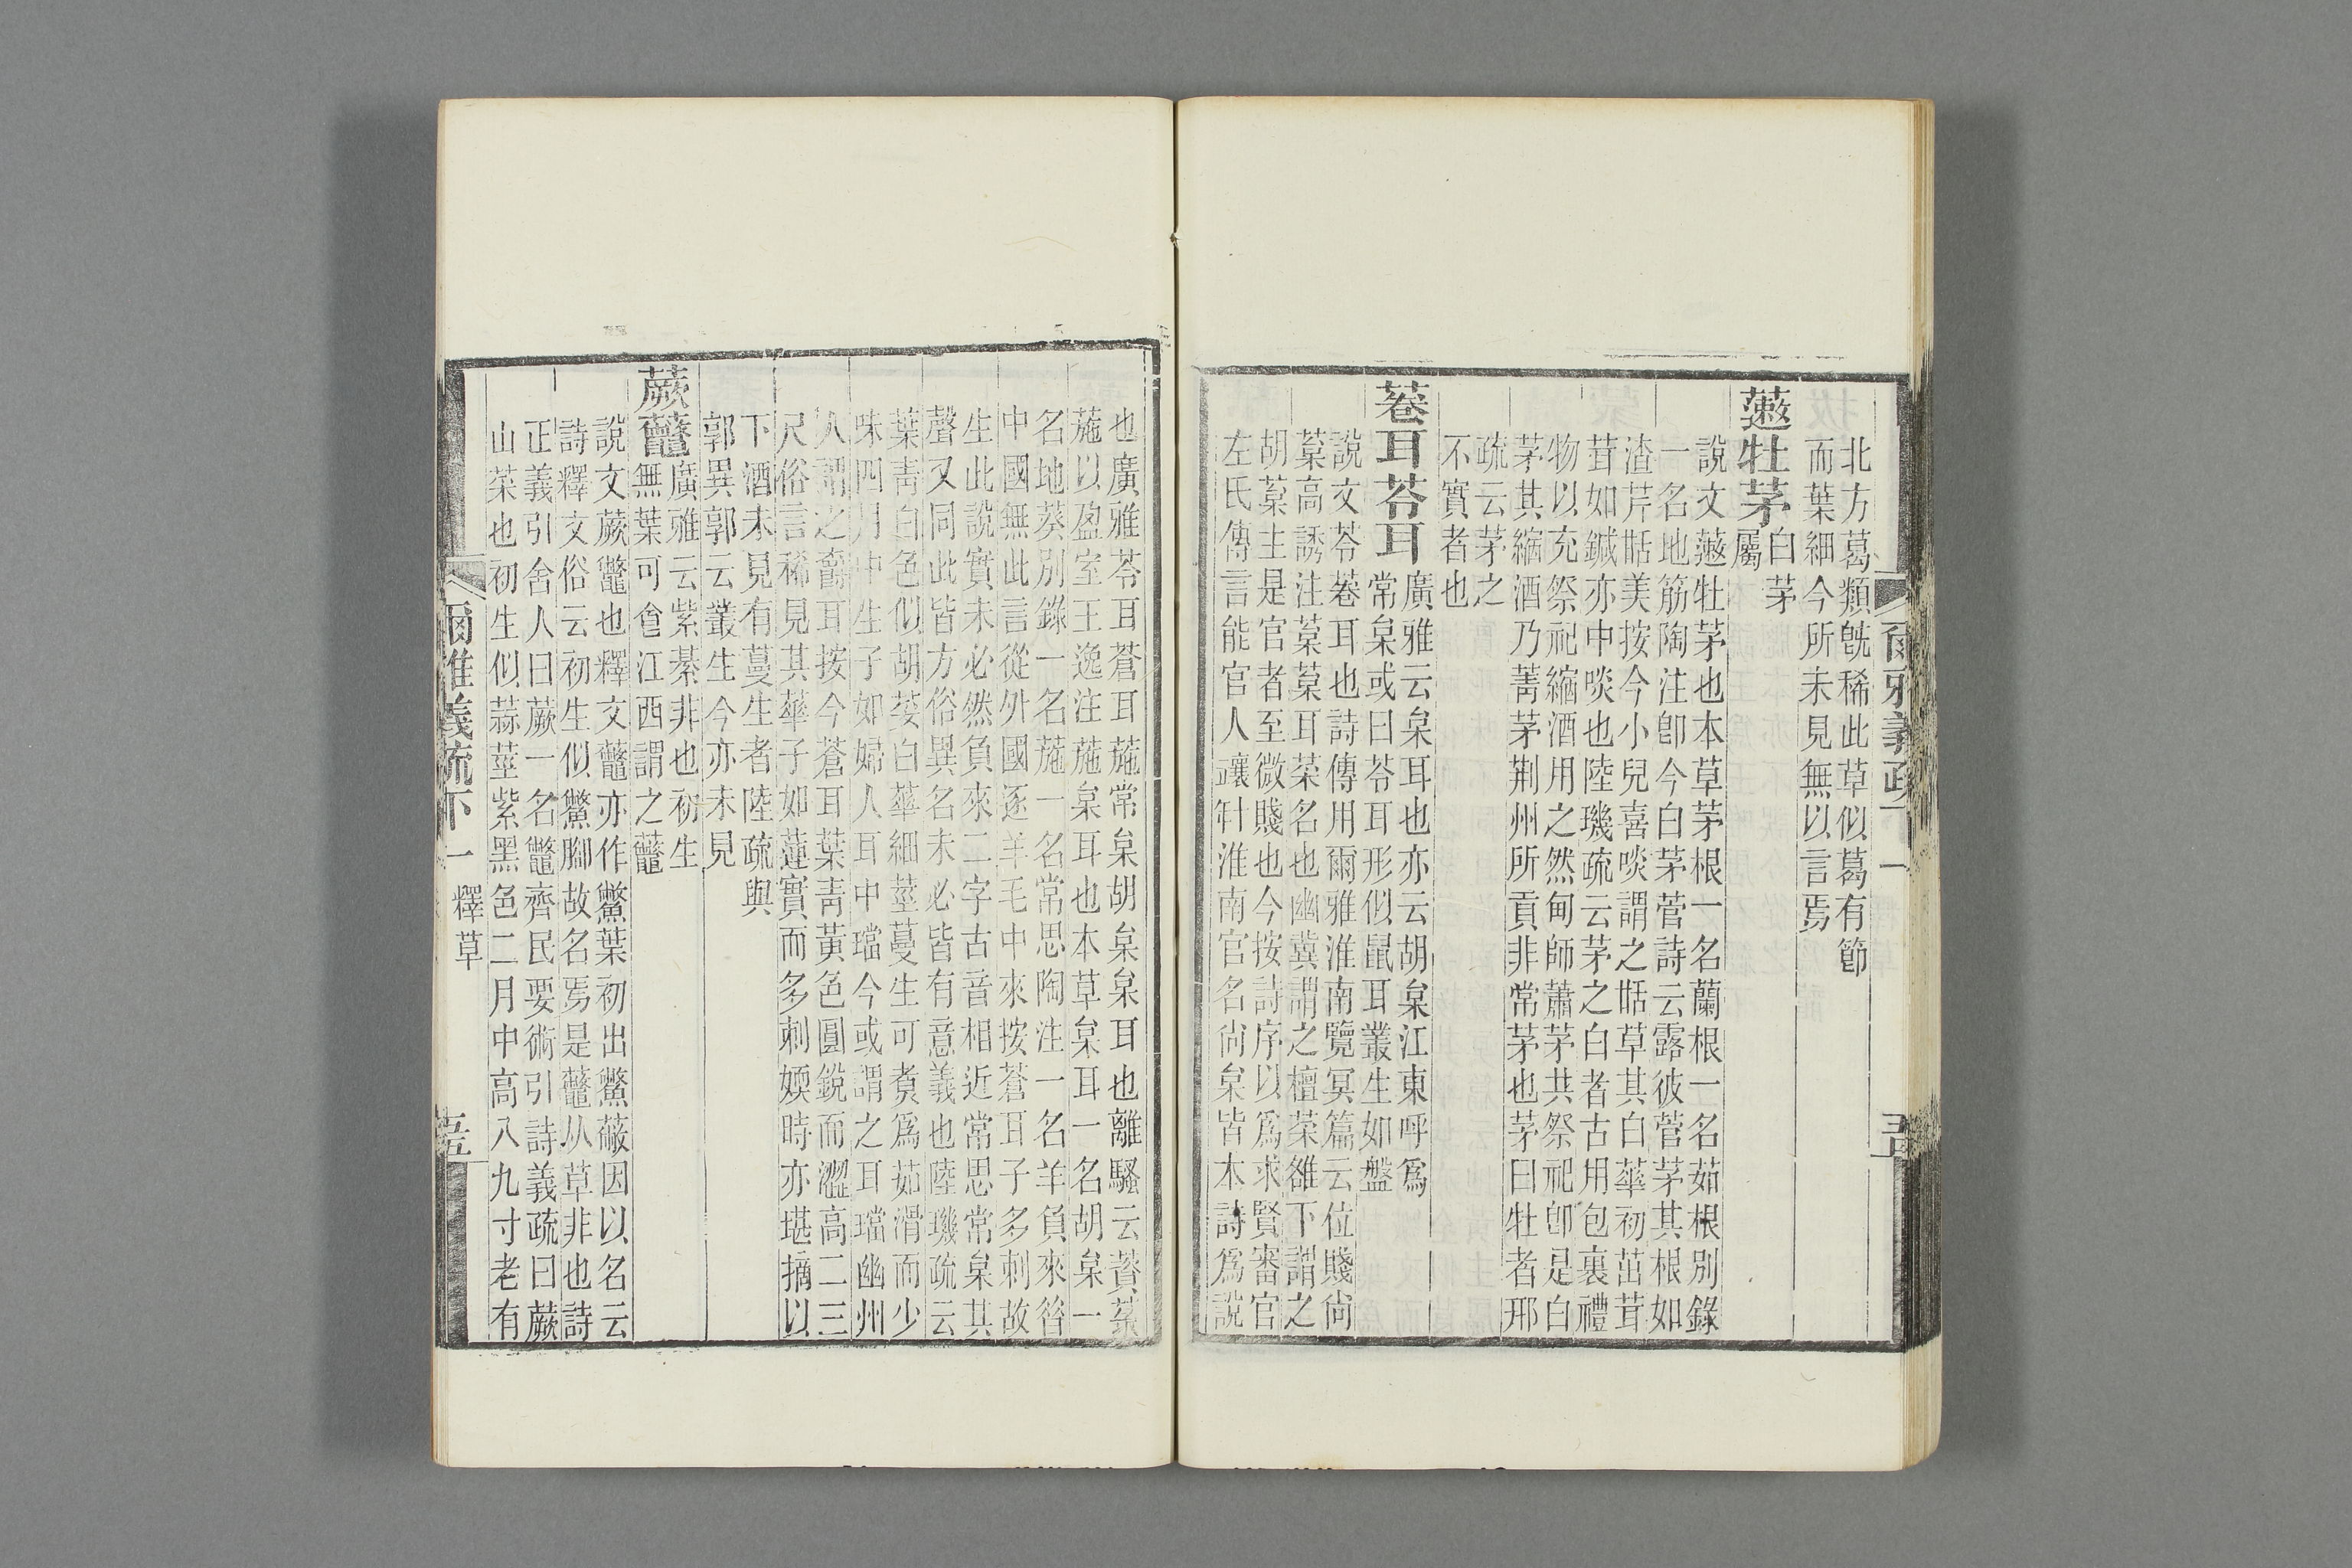 北方葛類旣稀此草似葛有節
而葉細今所未見無以言焉
藗牡茅白茅
屬
說文藗牡茅也本草茅根一名蘭根一名茹根別錄
一名地筋陶注卽今白茅菅詩云露彼菅茅其根如
渣芹甛美按今小兒喜啖謂之甛草其白華初茁茸
茸如鍼亦中啖也陸璣疏云茅之白者古用包裹禮
物以充祭祀縮酒用之然甸師蕭茅共祭祀卽是白
茅其縮酒乃菁茅荆州所貢非常茅也茅曰牡者邢
疏云茅之
不實者也
菤耳苓耳廣雅云枲耳也亦云胡枲江東呼爲
常枲或曰苓耳形似鼠耳叢生如盤
說文苓菤耳也詩傳用爾雅淮南覽冥篇云位賤尙
葈高誘注葈葈耳菜名也幽冀謂之檀菜雒下謂之
胡葈主是官者至微賤也今按詩序以爲求賢審官
左氏傳言能官人讓幵淮南官名尙枲皆本詩爲說
也廣雅苓耳蒼耳葹常枲胡枲枲耳也離騷云薋菉
葹以盈室王逸注葹枲耳也本草枲耳一名胡枲一
名地葵別錄一名葹一名常思陶注一名羊負來昝
中國無此言從外國逐羊毛中來按蒼耳子多刺故
生此說實未必然負來二字古音相近常思常枲其
聲又同此皆方俗異名未必皆有意義也陸璣疏云
葉青白色似胡荽白華細莖蔓生可煑爲茹滑而少
味四月中生子如婦人耳中璫今或謂之耳璫幽州
人謂之爵耳按今蒼耳葉青黃色圓銳而澀高二三
尺俗言稀見其華子如蓮實而多刺媆時亦堪摘以
下酒未見有蔓生者陸疏與
郭異郭云叢生今亦未見
蕨虌廣雅云紫綦非也初生
無葉可食江西謂之虌
說文蕨虌也釋文虌亦作鷩葉初出鷩蔽因以名云
詩釋文俗云初生似鷩腳故名焉是虌从草非也詩
正義引舍人曰蕨一名虌齊民要術引詩義疏曰蕨
山菜也初生似蒜莖紫黑色二月中高八九寸老有
爾雅義疏下一 釋草 五